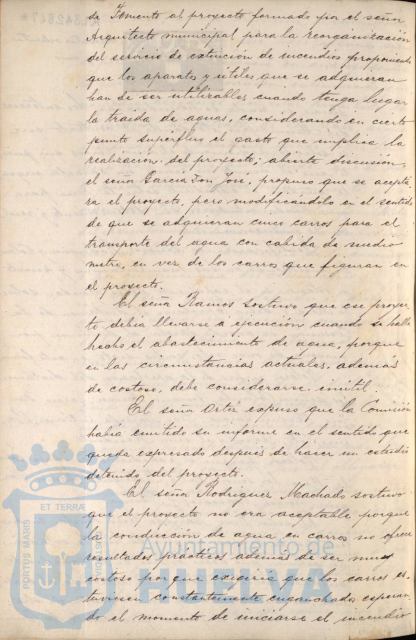 de Fomento al proyecto formado por el señor
Arquitecto municipal para la reorganización
del servicio de extinción de incendios proponiendo
que los aparatos y útiles que se adquieran
han de ser utilizables cuando tenga lugar
la traida de aguas, considerando en cierto
punto supérfluo el gasto que implica la
realización del proyecto; abierta discusión,
el señor García Don José, propuso que se acepta
ra el proyecto, pero modificándolo en el sentido
de que se adquieran cinco carros para el
transporte del agua con cabida de medio
metro, en vez de los carros que figuran en
el proyecto.
El señor Ramos sostuvo que ese proyec
to debía llevarse á ejecución cuando se halle
hecho el abastecimiento de agua, porque
en las circunstancias actuales, además
de costoso, debe considerarse inútil.
El señor Ortiz expuso que la Comisión
había emitido su informe en el sentido que
queda expresado después de hacer un estudio
detenido del proyecto.
El señor Rodriguez Machado sostuvo
que el proyecto no era aceptable porque
la conducción de agua en carros no ofrece
resultados prácticos además de ser muy
costoso porque exigiria que los carros es
tuviesen constantemente enganchados esperan
do el momento de iniciarse el incendio
PORTUS MARIS
ET TERRÆ
Ayuntamiento de
HUELVA